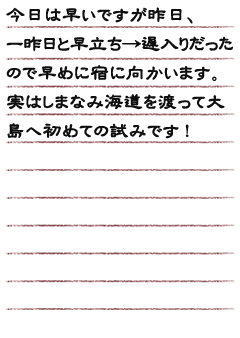 今日は早いですが昨日、
一昨日と早立ち→遅入りだった
ので早めに宿に向かいます。
実はしまなみ海道を渡って大
島へ初めての試みです！